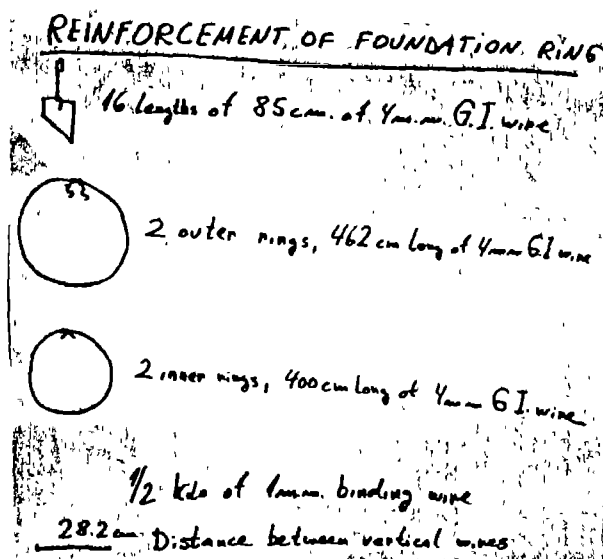 REINFORCEMENT OF FOUNDATION RING
16 Lengths of 85cm. of 4m.m. G.I. wire
2 outer rings, 462 cm long of 4mm G.I wire
2 inner rings, 400cm long of 4mm G I. wire
1/2 kilo of 1mm. binding wire
28.2 cm Distance between vertical wires